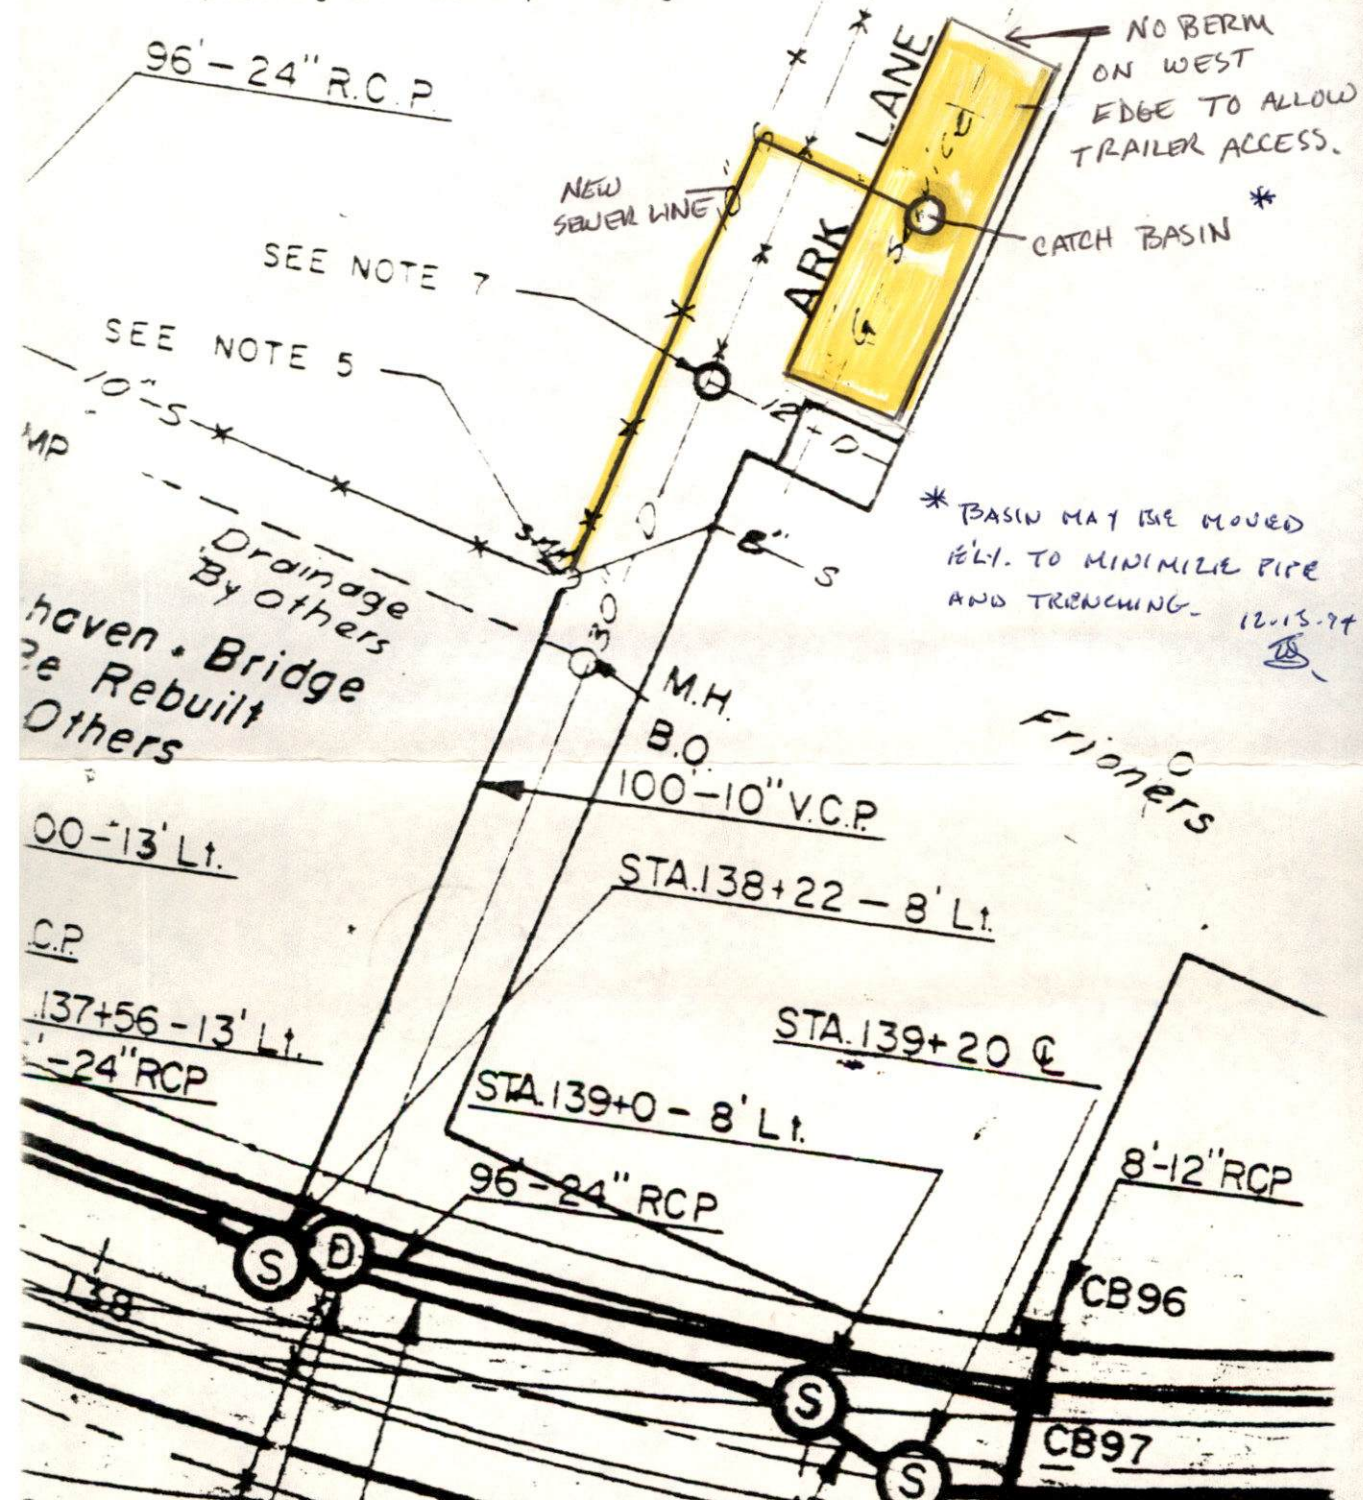 96'-24" R.C.P.
NO BERM
ON WEST
EDGE TO ALLOW
TRAILER ACCESS.
ARK LANE
NEW
SEWER LINE
CATCH BASIN *
SEE NOTE 7
SEE NOTE 5
10"-S
12
D
MP
8"
S
* BASIN MAY BE MOVED
E'LY. TO MINIMIZE PIPE
AND TRENCHING.
12.13.94
Drainage
By Others
haven. Bridge
Be Rebuilt
Others
30
D
M.H.
B.O.
Frioners
100'-10" V.C.P.
00-13' Lt.
STA.138+22 - 8' Lt.
C.P.
.137+56-13' Lt.
'-24" RCP
STA.139+20 ℄
STA.139+0 - 8' Lt.
96'-24" RCP
8'-12" RCP
S
D
138
CB96
S
CB97
S